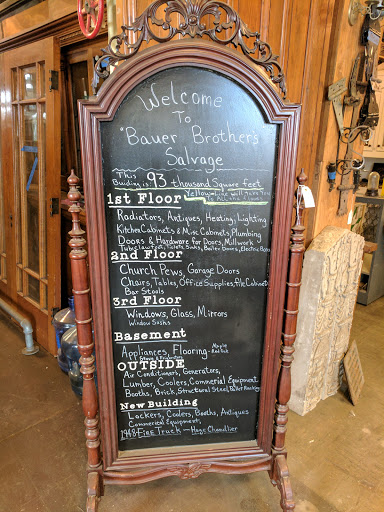 Welcome
To
"Bauer Brothers
Salvage
This
Building is 93 thousand Square feet
Yellow Line will take you
To All the floors
1st Floor
Radiators, Antiques, Heating, Lighting
Kitchen Cabinets & Misc Cabinets, Plumbing
Doors & Hardware for Doors, Millwork
Tubs, Toilets, Sinks, Boiler Doors, Electric Boxes
2nd Floor
Church Pews, Garage Doors
Chairs, Tables, Office Supplies, File Cabinets
Bar Stools
3rd Floor
Windows, Glass, Mirrors
Window Sashs
Basement
Appliances, Flooring - Maple
Red Oak
Stoves & Refrigerators
OUTSIDE
Air Conditioners, Generators,
Lumber, Coolers, Commercial Equipment
Booths, Brick, Structural Steel, Pallet Racking
New Building
Lockers, Coolers, Booths, Antiques
Commercial Equipment,
1948 Fire Truck - Huge Chandlier